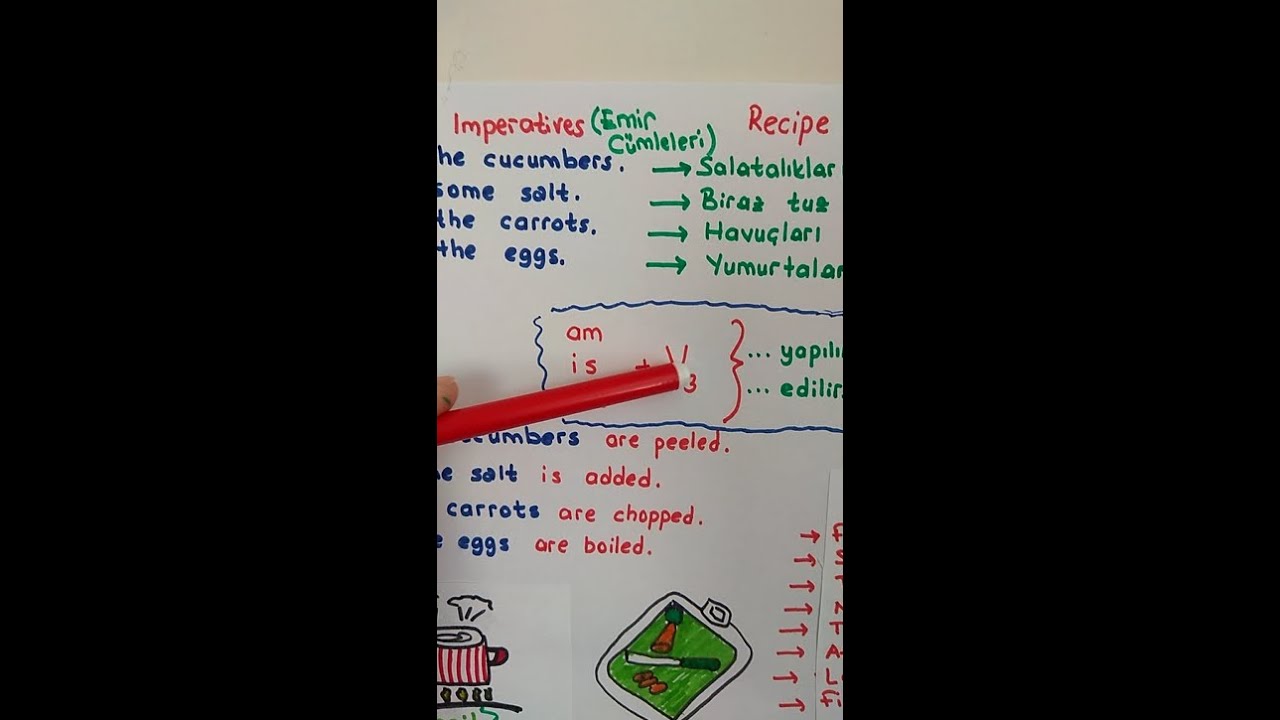 Imperatives (Emir Cümleleri) Recipe
he cucumbers. → Salatalıklar
some salt. → Biraz tuz
the carrots. → Havuçları
the eggs. → Yumurtalar
am
is + V3
... yapılı
... edilir
cumbers are peeled.
e salt is added.
carrots are chopped.
e eggs are boiled.